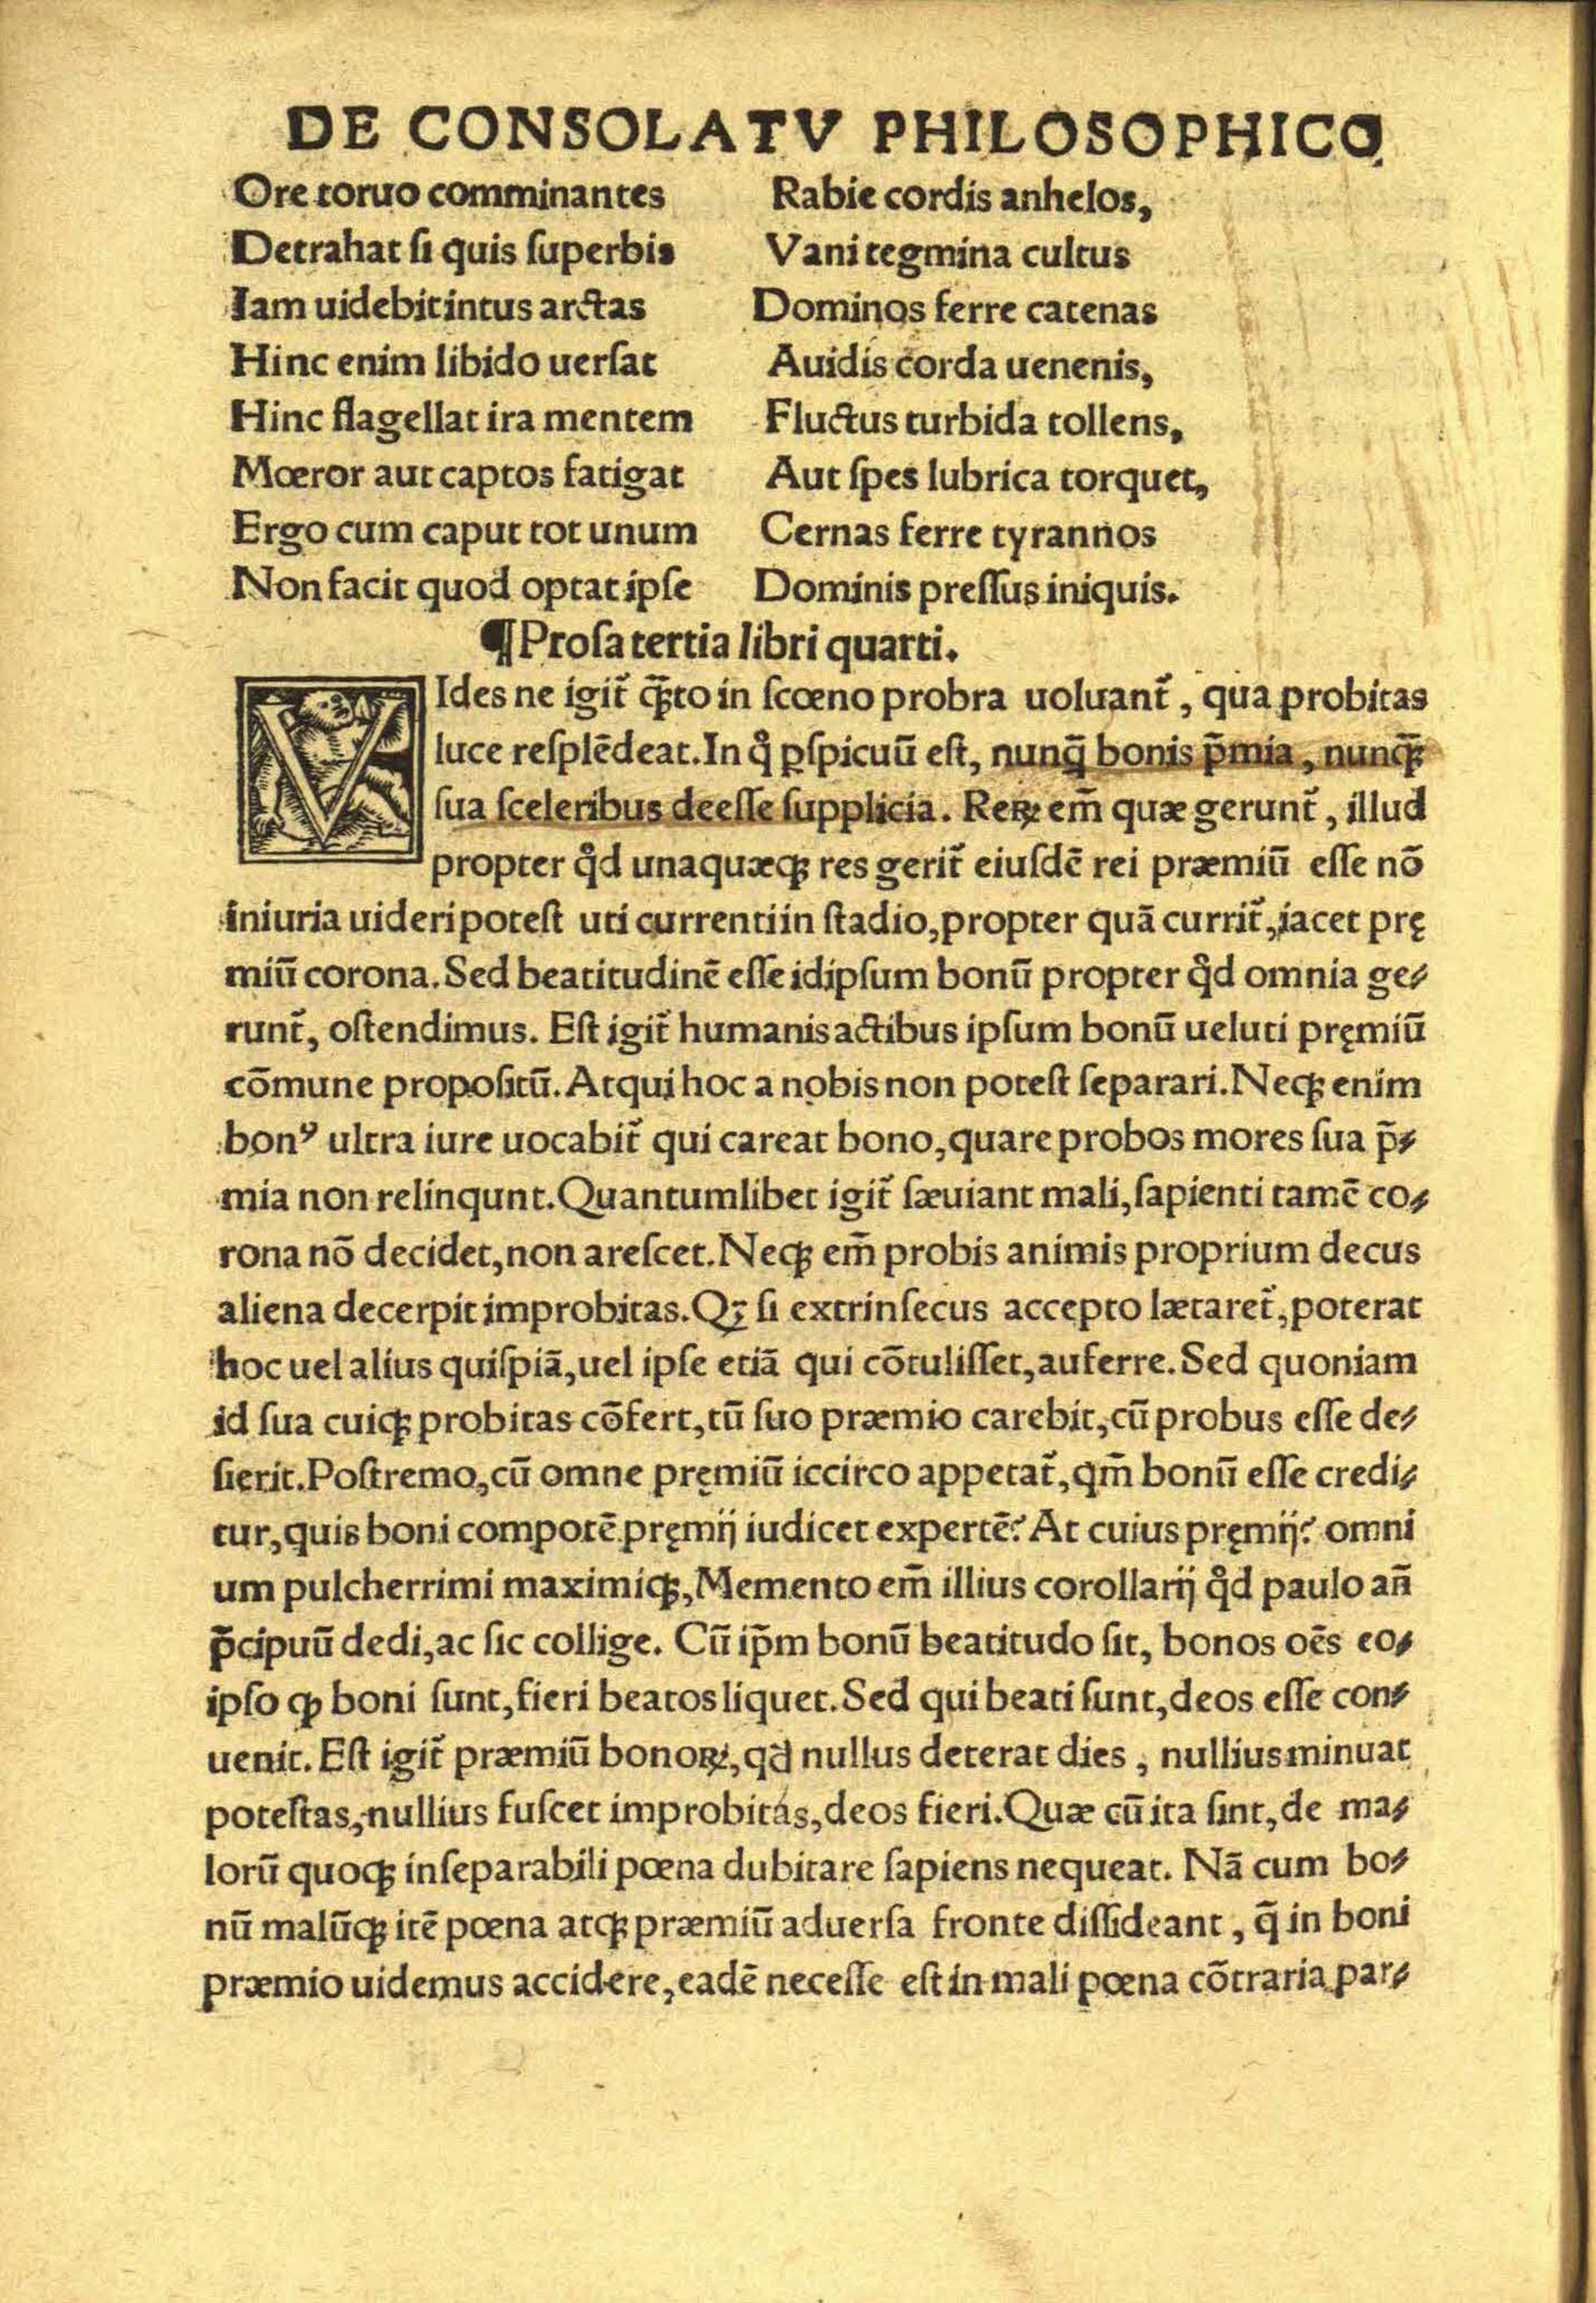 DE CONSOLATV PHILOSOPHICO
Ore toruo comminantes Rabie cordis anhelos,
Detrahat ſi quis ſuperbis Vani tegmina cultus
Iam uidebit intus arctas Dominos ferre catenas
Hinc enim libido uerſat Auidis corda uenenis,
Hinc flagellat ira mentem Fluctus turbida tollens,
Mœror aut captos fatigat Aut ſpes lubrica torquet,
Ergo cum caput tot unum Cernas ferre tyrannos
Non facit quod optat ipſe Dominis preſſus iniquis.
¶Proſa tertia libri quarti.
VIdes ne igit̃ q̃to in ſcœno probra uoluant̃, qua probitas
luce reſplēdeat. In qͦ ꝑſpicuū eſt, nunq̃ bonis p̄mia, nunꝙ̃
ſua ſceleribus deeſſe ſupplicia. Reꝝ em̃ quæ gerunt̃, illud
propter qͦd unaquæqꝫ res gerit̃ eiuſdē rei præmiū eſſe nō
iniuria uideri poteſt uti currenti in ſtadio, propter quā currit̃, iacet prę
miū corona. Sed beatitudinē eſſe idipſum bonū propter qͦd omnia ge⸗
runt̃, oſtendimus. Eſt igit̃ humanis actibus ipſum bonū ueluti pręmiū
cōmune propoſitū. Atqui hoc a nobis non poteſt ſeparari. Neqꝫ enim
bonꝰ ultra iure uocabit̃ qui careat bono, quare probos mores ſua p̄⸗
mia non relinqunt. Quantumlibet igit̃ ſæuiant mali, ſapienti tamē co⸗
rona nō decidet, non areſcet. Neqꝫ em̃ probis animis proprium decus
aliena decerpit improbitas. Qꝫ ſi extrinſecus accepto lætaret̃, poterat
hoc uel alius quiſpiā, uel ipſe etiā qui cōtuliſſet, auferre. Sed quoniam
id ſua cuiqꝫ probitas cōfert, tū ſuo præmio carebit, cū probus eſſe de⸗
ſierit. Poſtremo, cū omne pręmiū iccirco appetat̃, qm̃ bonū eſſe credi⸗
tur, quis boni compotē pręmij iudicet expertē? At cuius pręmij? omni
um pulcherrimi maximiqꝫ, Memento em̃ illius corollarij qͦd paulo añ
p̄cipuū dedi, ac ſic collige. Cū ip̄m bonū beatitudo ſit, bonos oēs eo⸗
ipſo ꝙ boni ſunt, fieri beatos liquet. Sed qui beati ſunt, deos eſſe con⸗
uenit. Eſt igit̃ præmiū bonoꝝ, qd̃ nullus deterat dies, nullius minuat
poteſtas, nullius fuſcet improbitas, deos fieri. Quæ cū ita ſint, de ma⸗
lorū quoqꝫ inſeparabili pœna dubitare ſapiens nequeat. Nā cum bo⸗
nū malūqꝫ itē pœna atqꝫ præmiū aduerſa fronte diſſideant, q̄ in boni
præmio uidemus accidere, eadē neceſſe eſt in mali pœna cōtraria par⸗